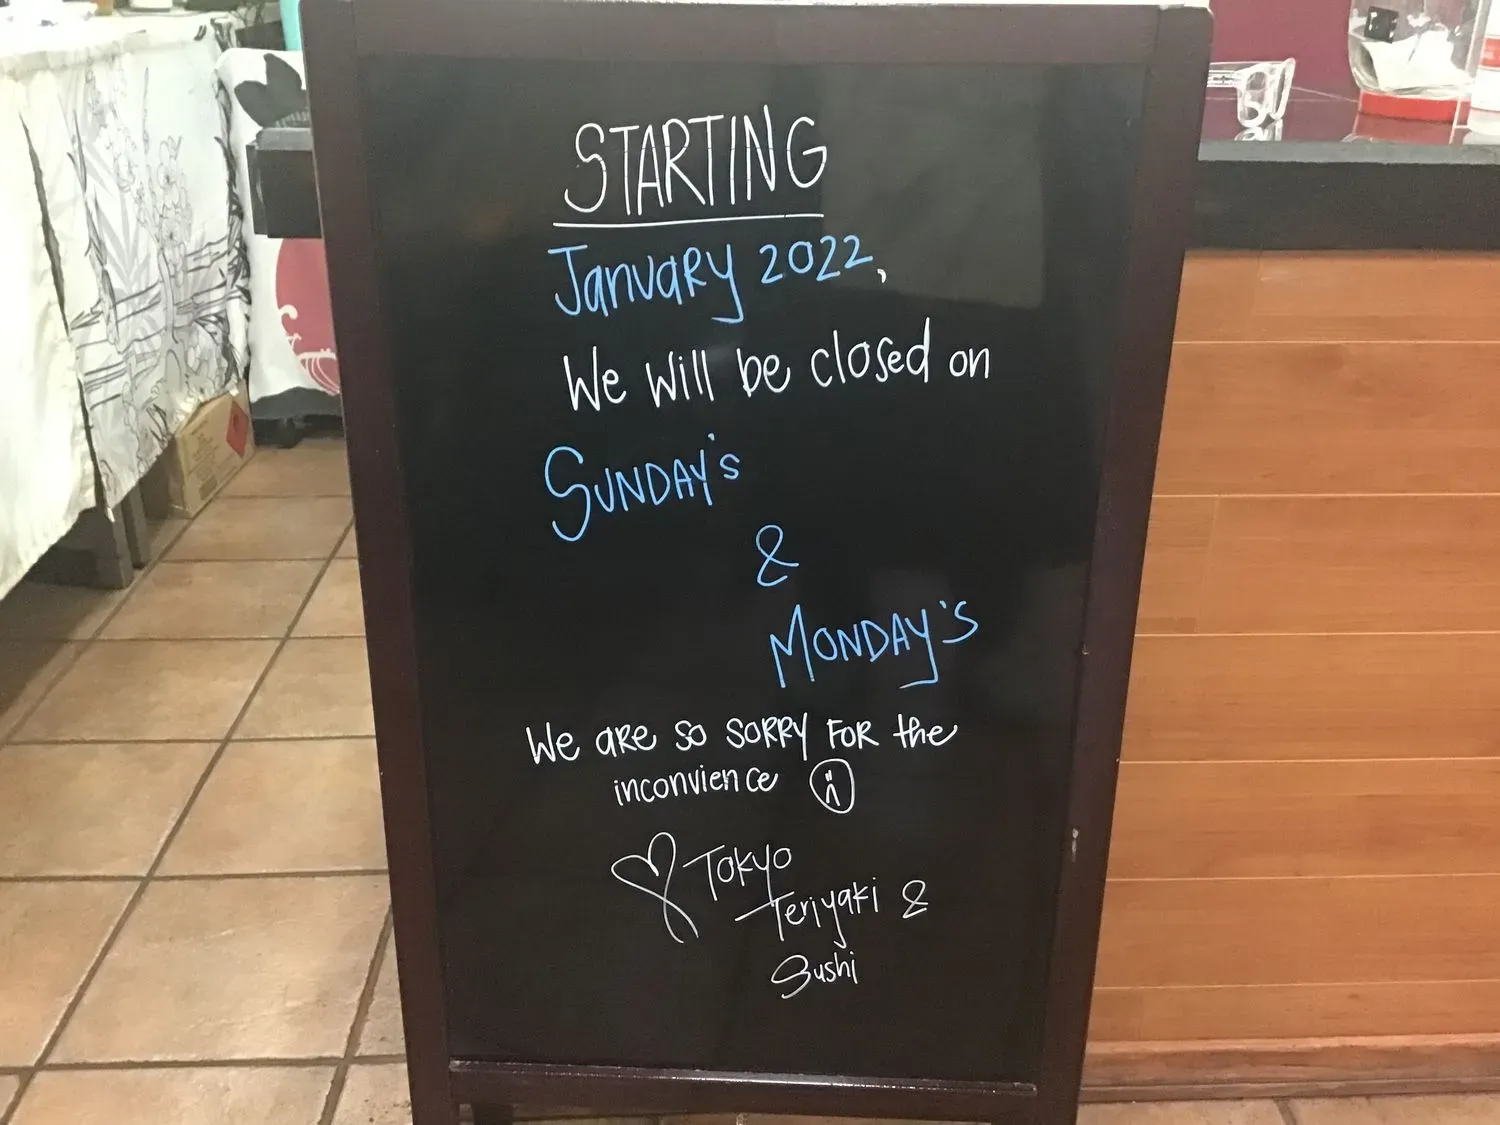 STARTING
January 2022,
We will be closed on
SUNDAY's
&
MONDAY's
We are so sorry for the
inconvience
Tokyo
Teriyaki &
Sushi